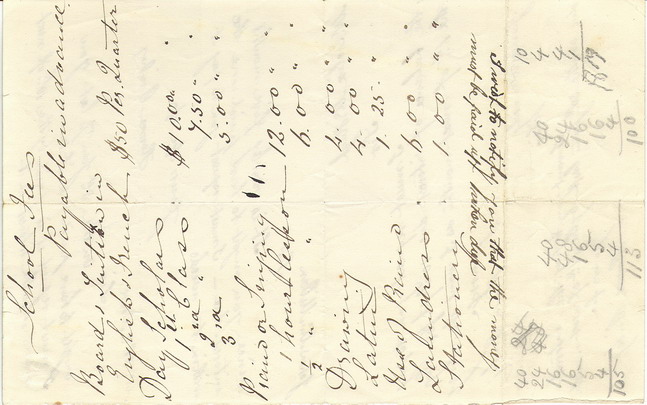 School Fees
Payable in advance
Board & Tuition in
English & French $50 Per Quarter
Day Scholars
1st Class $10.00 "
2nd " 7.50 " "
3rd 5.00 " "
Piano or Singing
1 hour Lesson 12.00 " "
1/2 " " 6.00 " "
Drawing 4.00 " "
Latin 4.00 " "
Use of Piano 1.25 "
Laundress 6.00 " "
Stationery 1.00 "
I wish to notify you that the money
must be paid
10
4
4
40
24
16
16
4
100
40
40
16
5
4
115
40
24
16
16
5
4
105